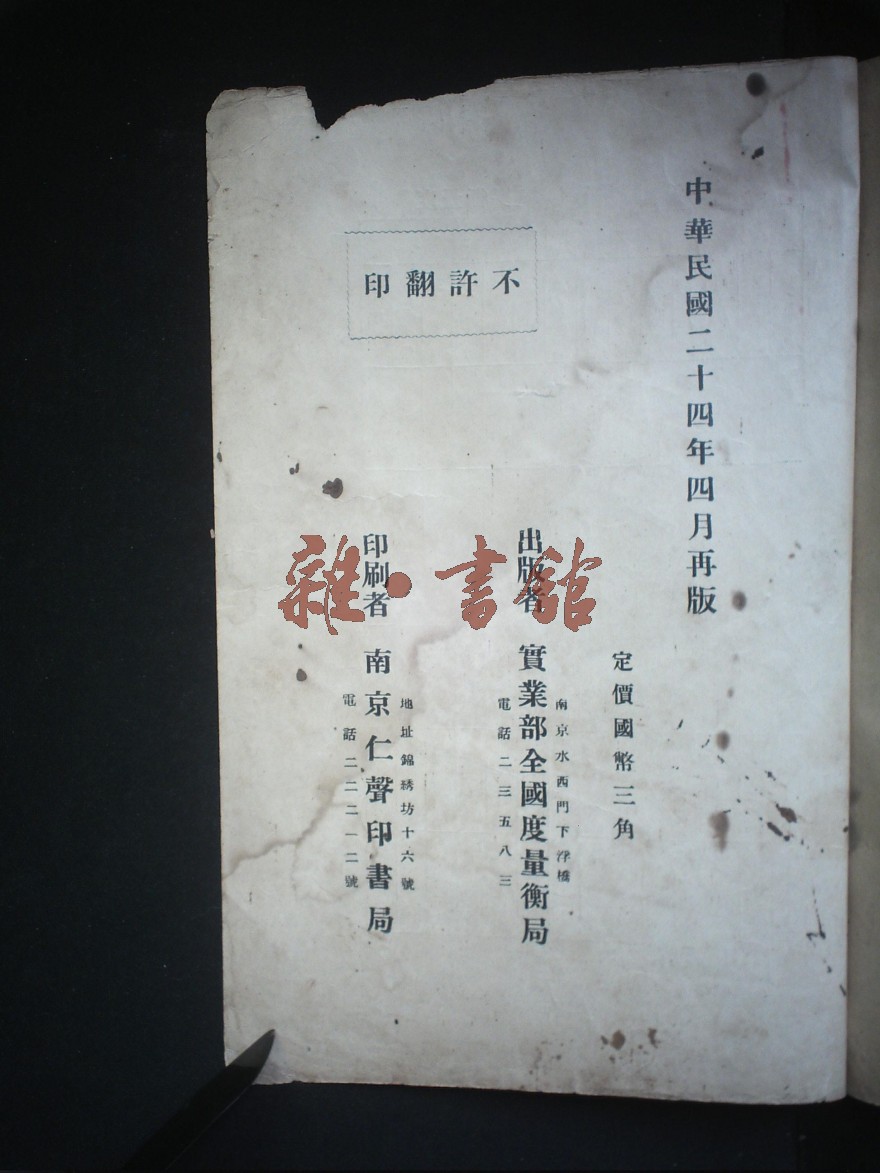 中華民國二十四年四月再版
定價國幣三角
不許翻印
南京水西門下浮橋
出版者 實業部全國度量衡局
電話二三五八三
地址錦綉坊十六號
印刷者 南京仁聲印書局
電話二二二一二號
雜·書館